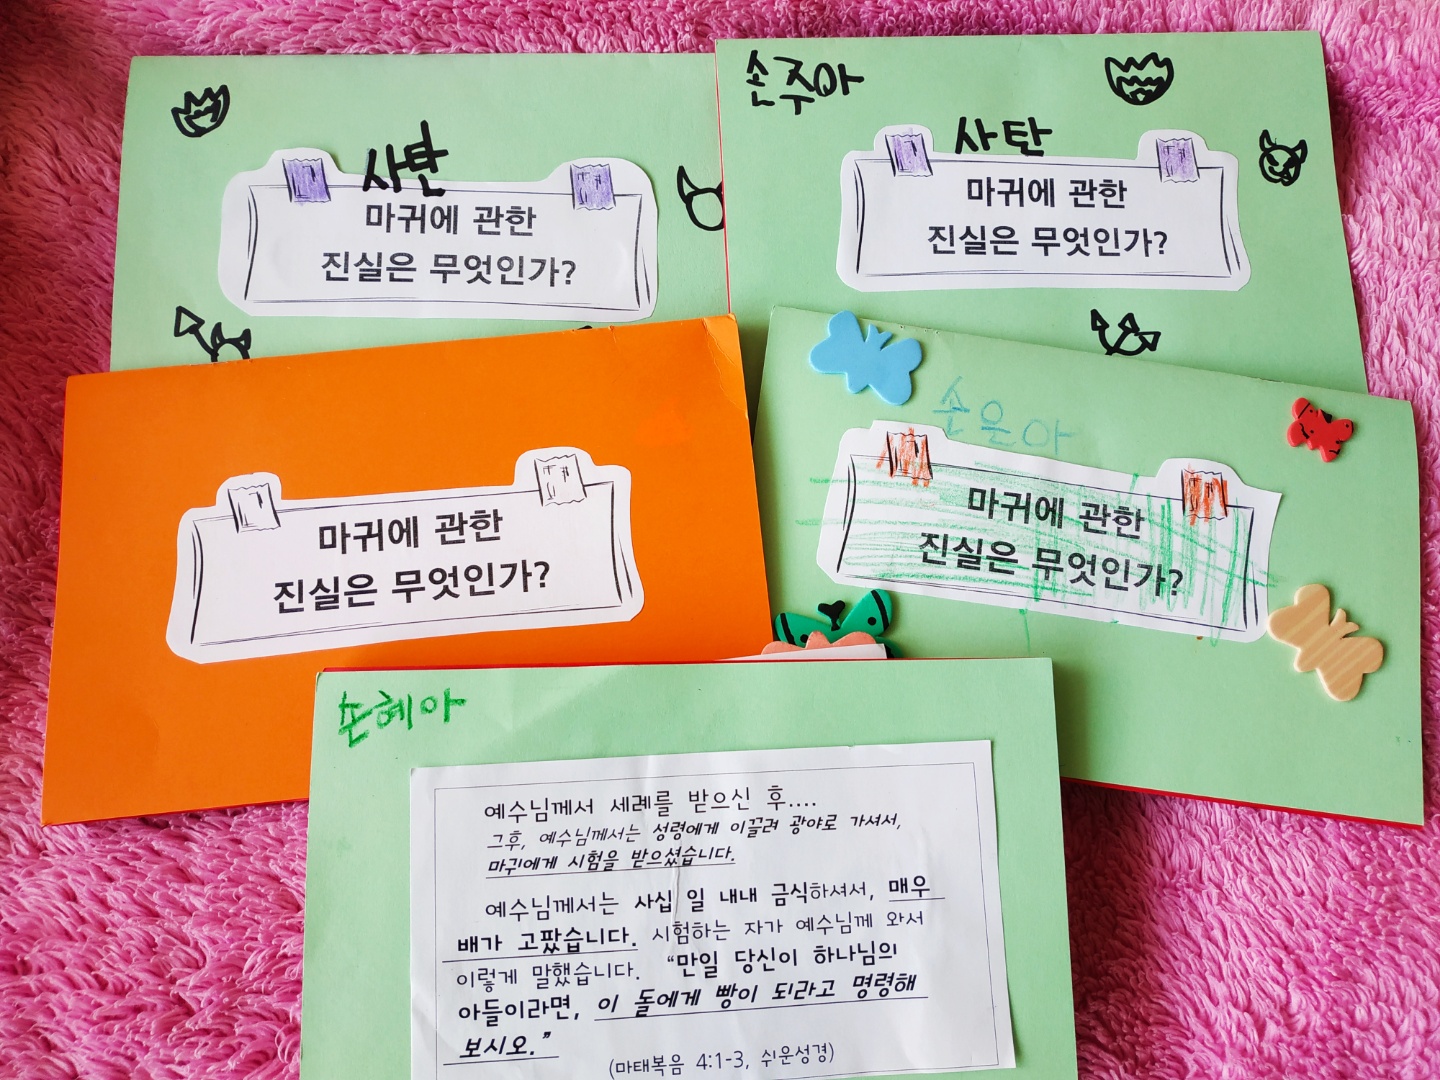 사탄
마귀에 관한
진실은 무엇인가?
손주아
사탄
마귀에 관한
진실은 무엇인가?
마귀에 관한
진실은 무엇인가?
손은아
마귀에 관한
진실은 무엇인가?
손혜아
예수님께서 세례를 받으신 후....
그후, 예수님께서는 성령에게 이끌려 광야로 가셔서,
마귀에게 시험을 받으셨습니다.
예수님께서는 사십 일 내내 금식하셔서, 매우
배가 고팠습니다. 시험하는 자가 예수님께 와서
이렇게 말했습니다. “만일 당신이 하나님의
아들이라면, 이 돌에게 빵이 되라고 명령해
보시오.”
(마태복음 4:1-3, 쉬운성경)